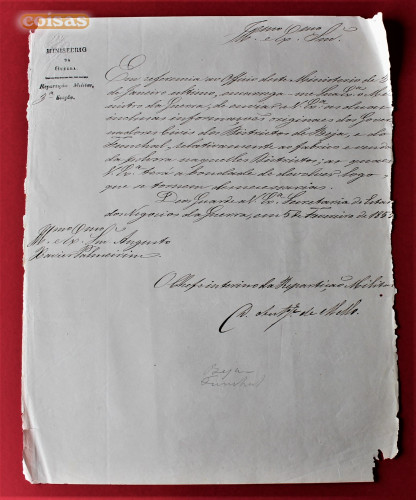 coisas
MINISTERIO
DA
GUERRA
Repartição Militar
Secção
Illmo Exmo
Em referencia ao Officio deste Ministerio de
de Janeiro ultimo, encarrega-me Sua Exa o Mi-
nistro da Guerra, de enviar a V. Exa as duas
inclusas informações originaes dos Gover-
nadores Civis dos Districtos de Beja, e do
Funchal, relativamente ao fabrico e venda
da polvora naquelles Districtos; as quaes
V. Exa terá a bondade de devolver logo
que se tornem desnecessarias.
Deos Guarde a V. Exa Secretaria de Estado
dos Negocios da Guerra, em 5 de Fevereiro de
Illmo Exmo
Snr Augusto
Xavier Palmeirim
O Chefe interino da Repartição Militar
de Mello.
Beja
Funchal